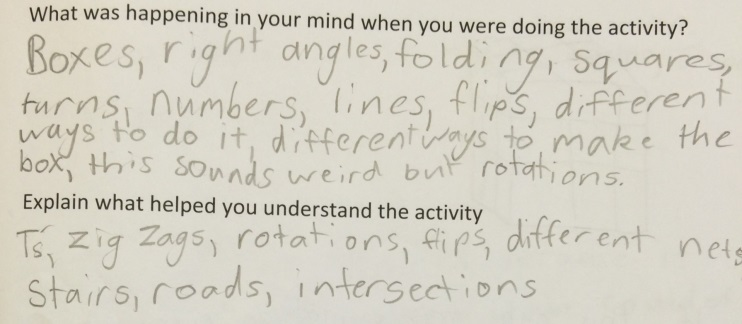 What was happening in your mind when you were doing the activity?
Boxes, right angles, folding, squares,
turns, numbers, lines, flips, different
ways to do it, different ways to make the
box, this sounds weird but rotations.
Explain what helped you understand the activity
T's, zig zags, rotations, flips, different nets
Stairs, roads, intersections